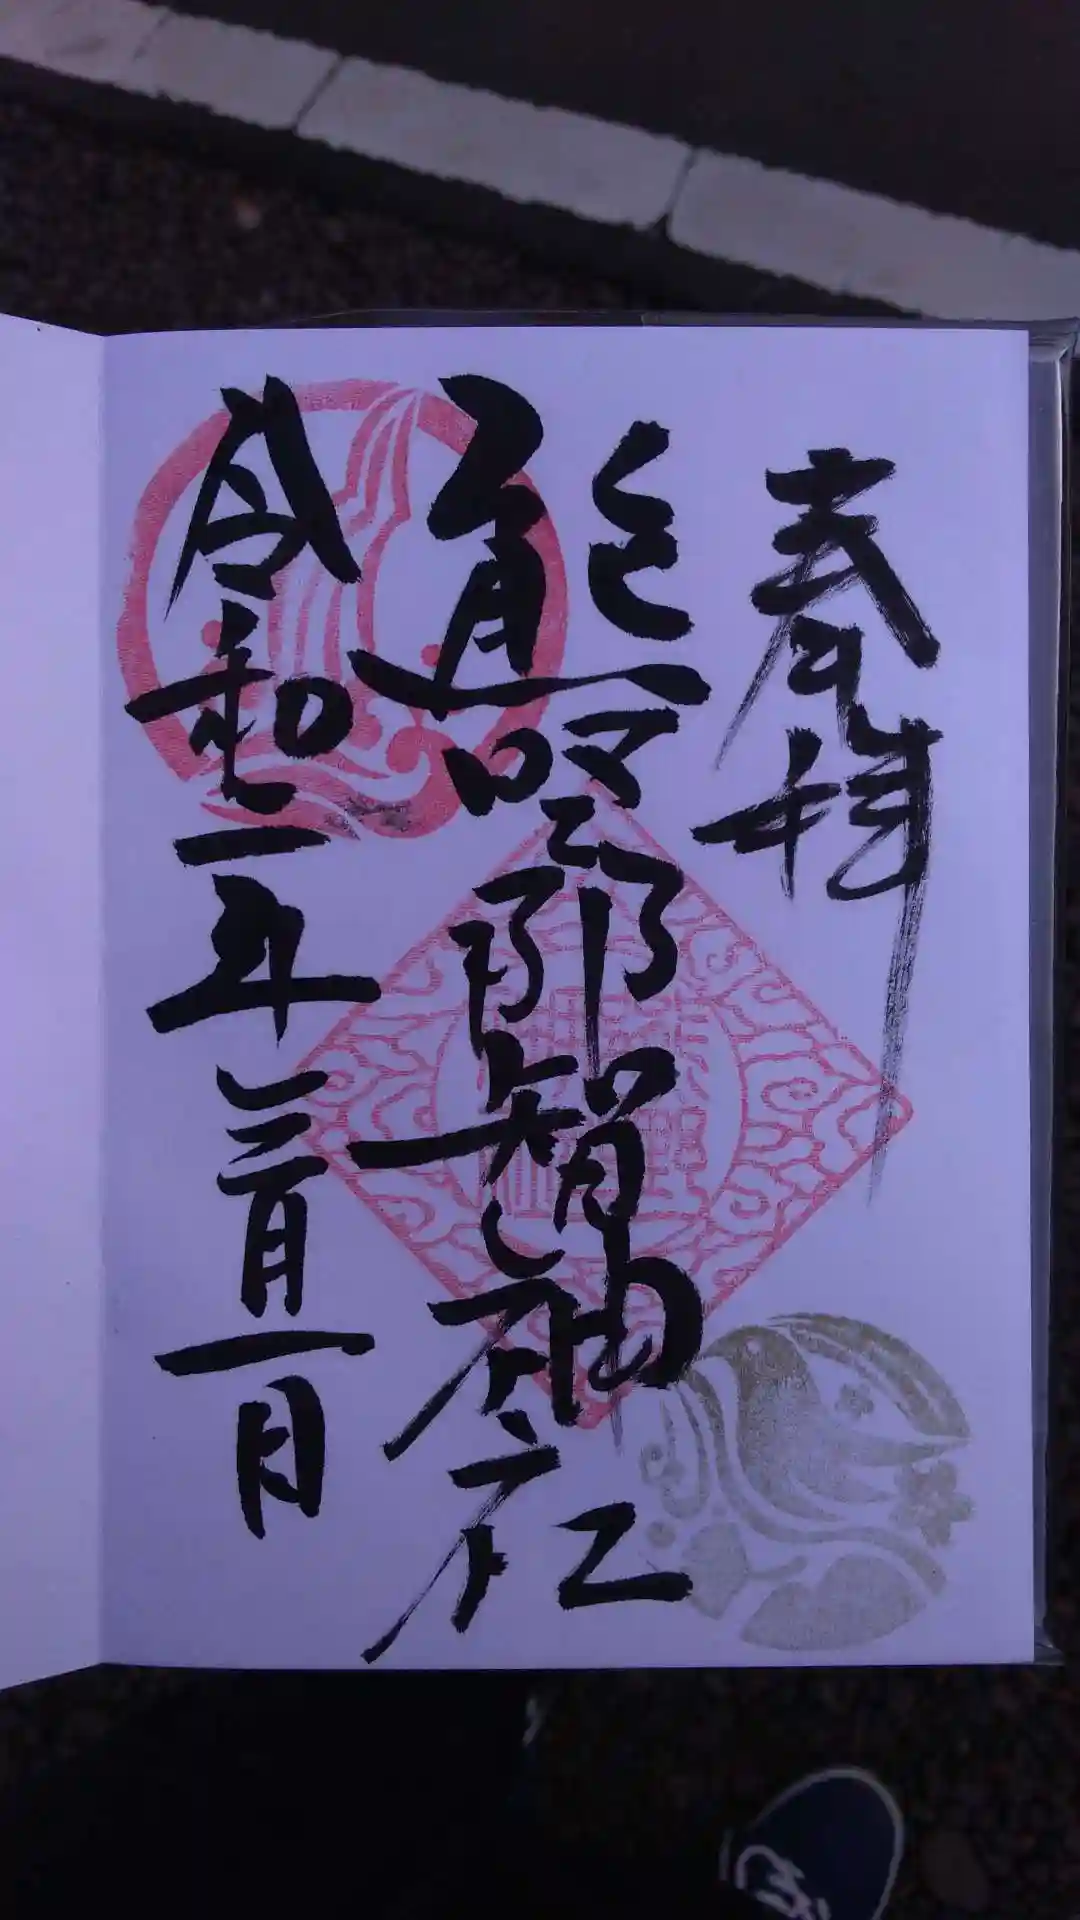 奉拝
熊野那智神社
令和二年三月一日